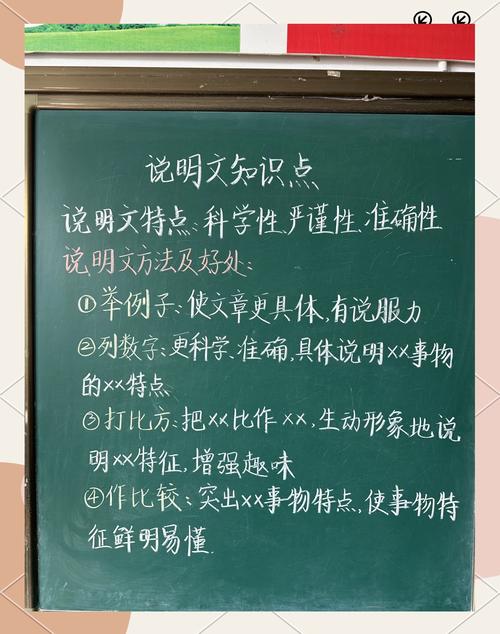 说明文知识点
说明文特点:科学性、严谨性、准确性
说明文方法及好处:
①举例子:使文章更具体,有说服力
②列数字:更科学、准确,具体说明××事物
的××特点
③打比方:把××比作××,生动形象地说
明××特征,增强趣味
④作比较:突出××事物特点,使事物特
征鲜明易懂.